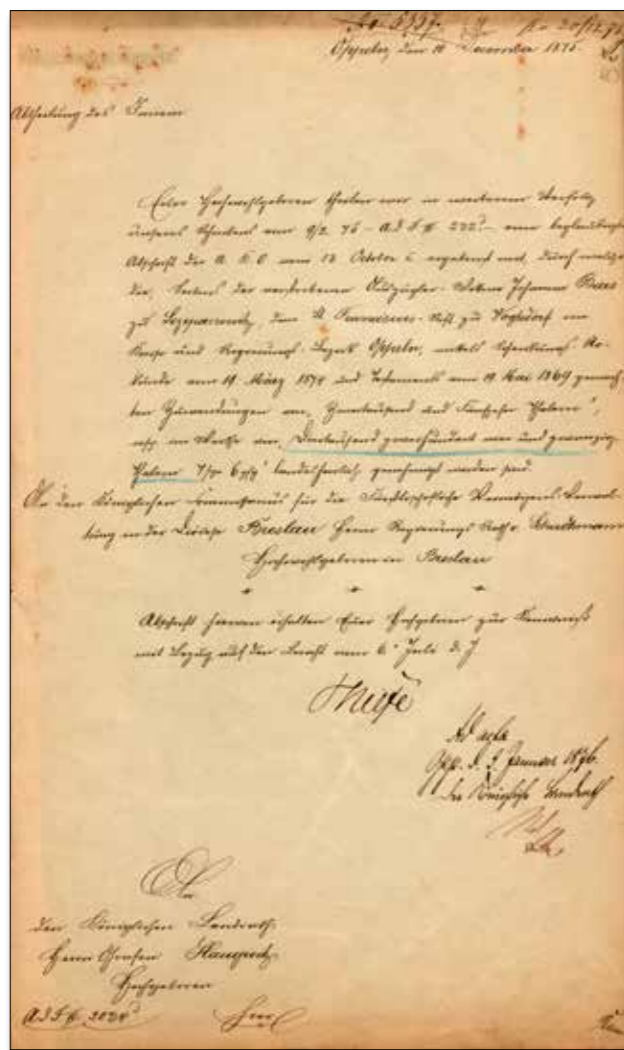 No 5937. 20/12. 75
Oppeln, den 11 December 1875.
Abtheilung des Innern
Euer Hochwohlgeboren theilen wir in weiterem Verfolg
unseres Schreibens vom 9/2. 75 – a. d. I. XI 232 – eine beglaubigte
Abschrift der A. K. O. vom 13 October c. ergebenst mit, durch welche
die, Seitens der verstorbenen Auszügler-Wittwe Johanna
zu Szczepanowitz, dem St Franciscus-Stift zu Vogtsdorf im
Kreise und Regierungs-Bezirk Oppeln, mittels Schenkungs-Ur-
kunde vom 11 März 1874 und Testaments vom 19 Mai 1869 gemach-
ten Zuwendungen von Zweitausend und Thalern,
resp. im Werthe von Dreitausend zweihundert und zwanzig
Thalern 7 sgr 6 landesherrlich genehmigt worden sind.
An den Königlichen Commissarius für die Bischöfliche Vermögens-Verwal-
tung in der Diözese Breslau Herrn Regierungs Rath
Hochwohlgeboren in Breslau
Abschrift hiervon erhalten Euer Hochgeboren zur Kenntniß
mit Bezug auf den Bericht vom 6 Juli d. J.
Ad acta
Opp. d. 3 Januar 1876.
der Königliche Landrath
An
den Königlichen Landrath
Herrn Grafen Haugwitz
Hochgeboren
hier